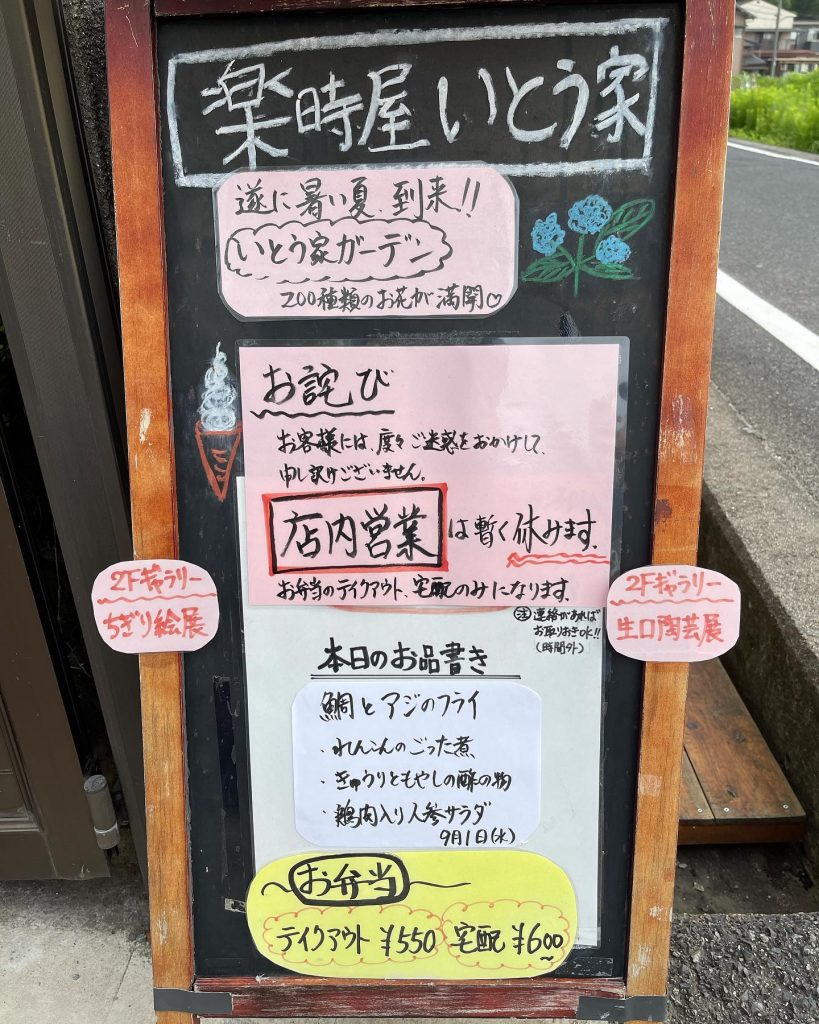 楽時屋 いとう家
遂に暑い夏、到来!!
いとう家ガーデン
200種類のお花が満開♡
お詫び
お客様には、度々ご迷惑をおかけして、
申し訳けございません。
店内営業は暫く休みます。
お弁当のテイクアウト、宅配のみになります。
注 連絡があれば
お取りおきOK!!
(時間外)
2Fギャラリー
ちぎり絵展
2Fギャラリー
生口陶芸展
本日のお品書き
鯛とアジのフライ
・れんこんのごった煮
・きゅうりともやしの酢の物
・鶏肉入り人参サラダ
9月1日(水)
〜お弁当〜
テイクアウト ¥550 宅配 ¥600〜